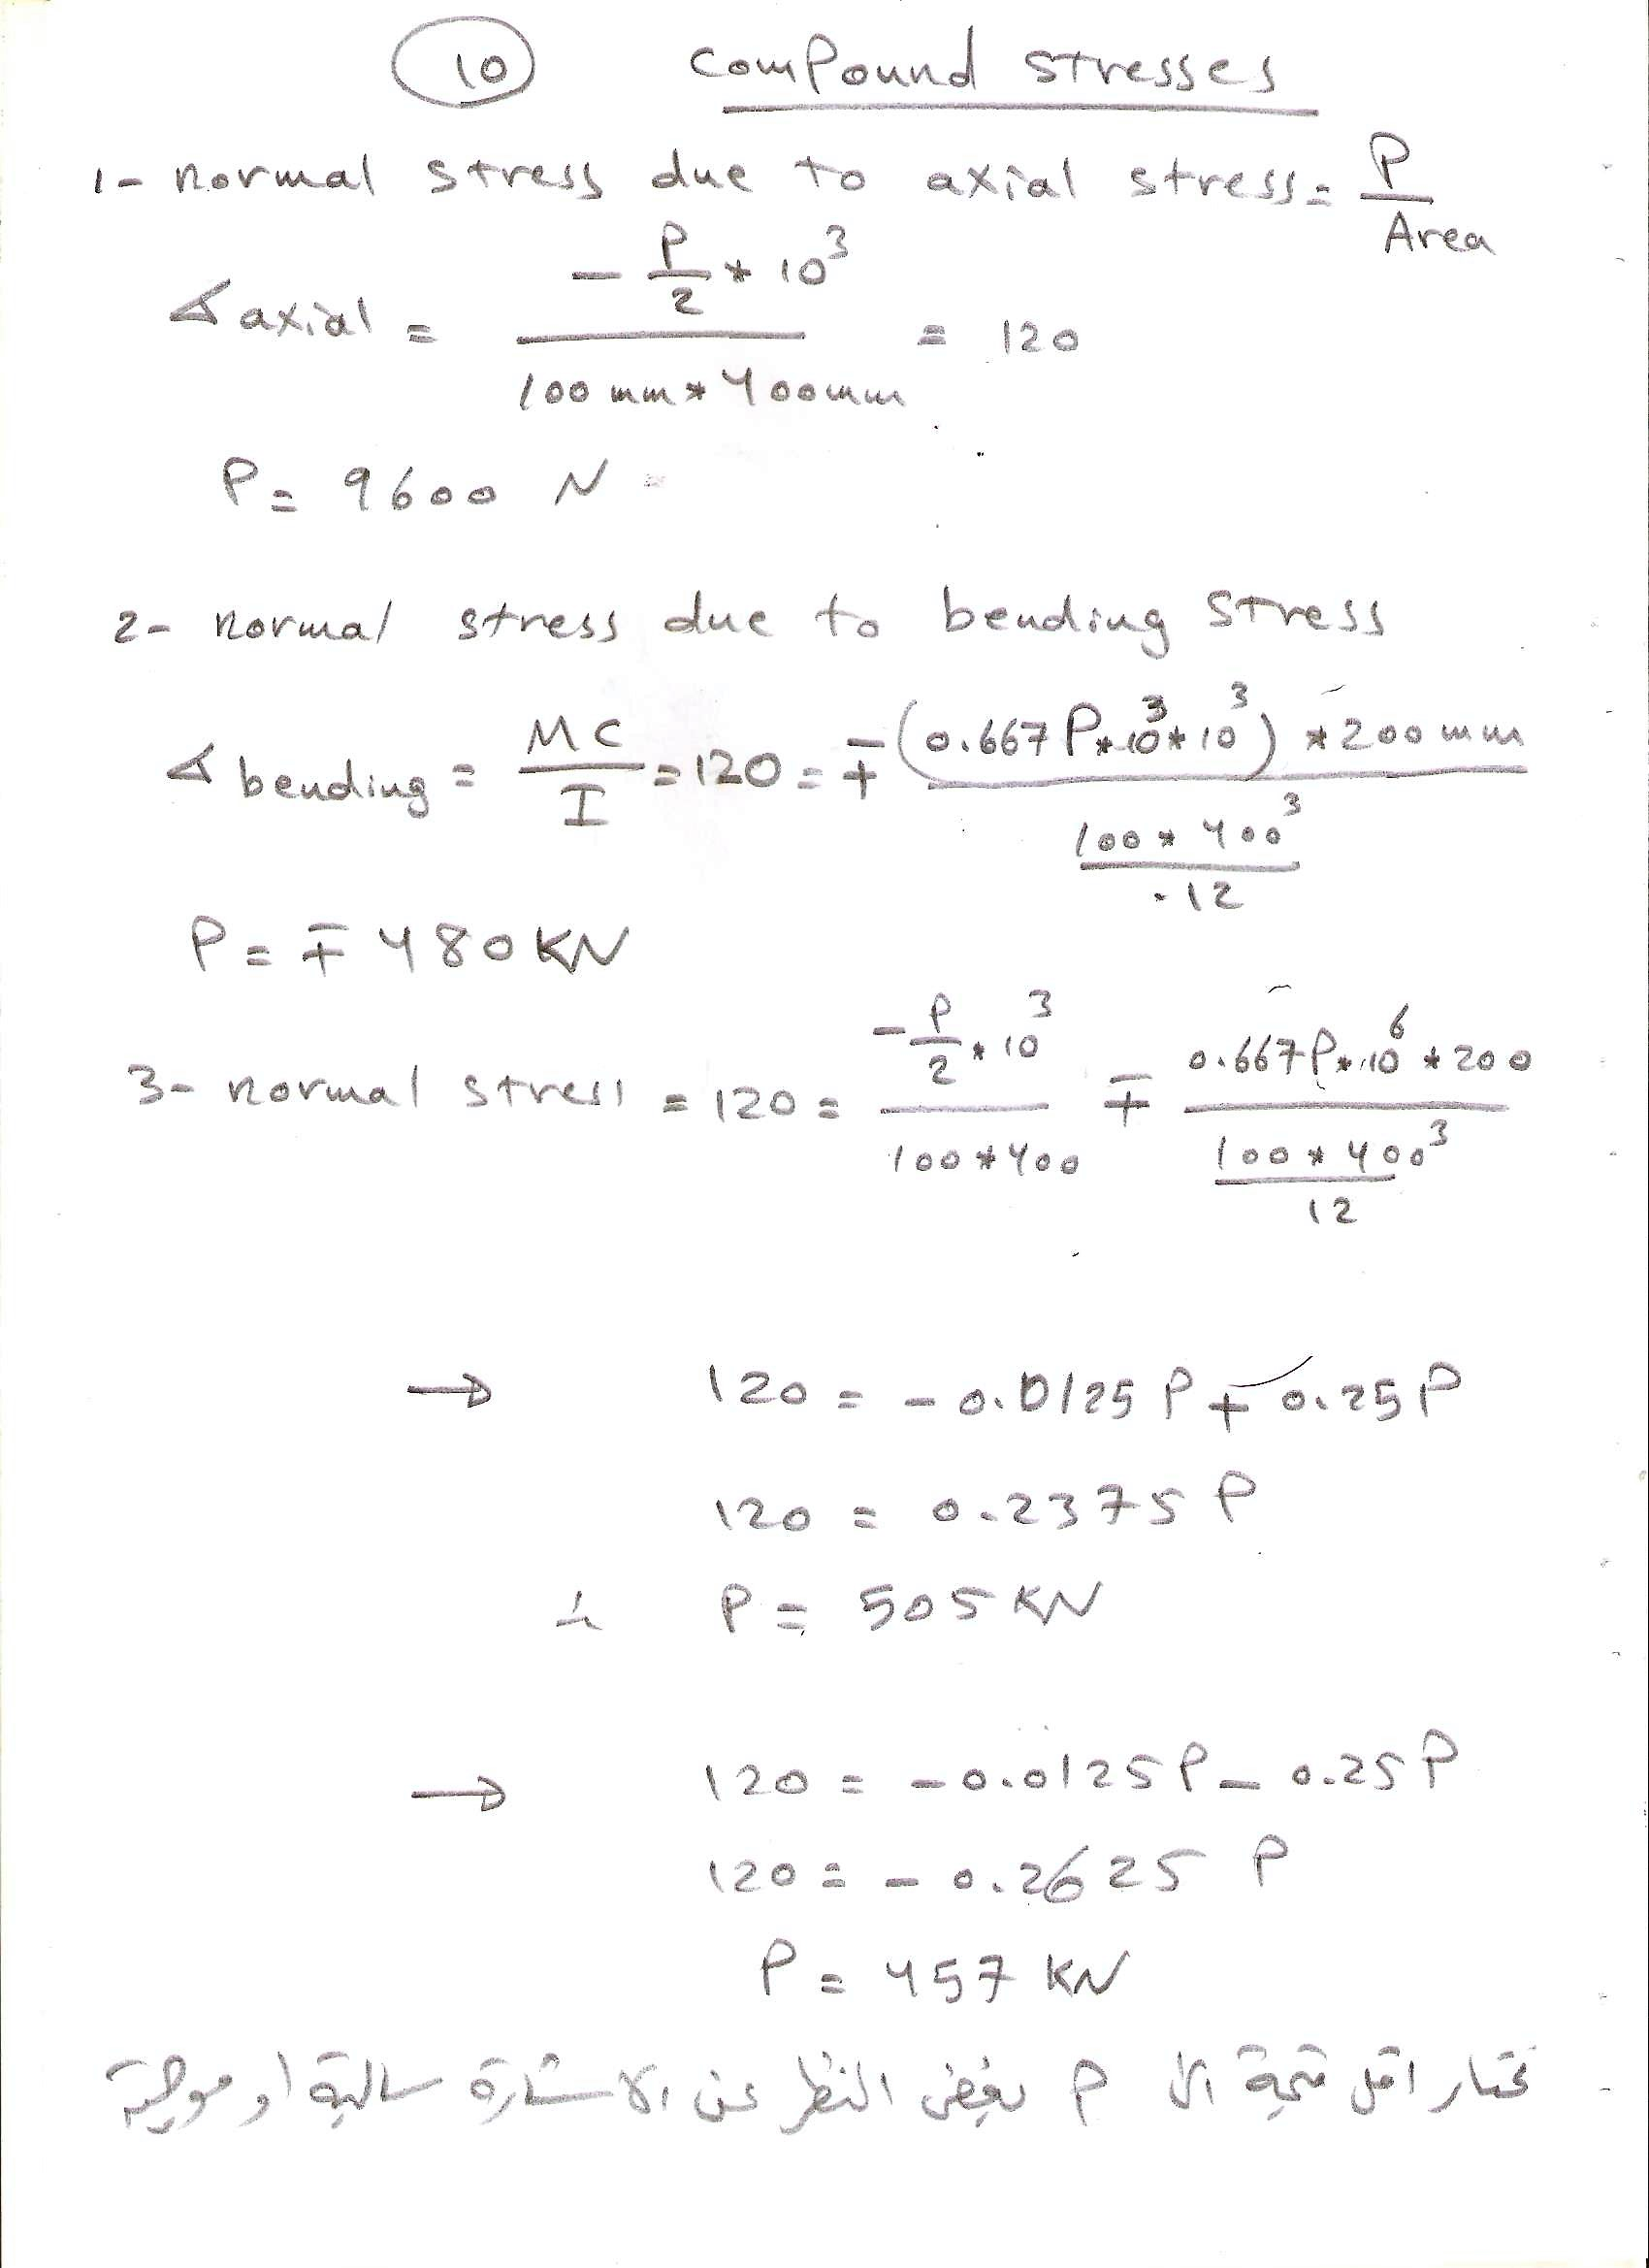 10 Compound stresses
1- normal stress due to axial stress = P / Area
σ axial = (- P/2 * 10³) / (100 mm * 400 mm) = 120
P = 9600 N
2- normal stress due to bending stress
σ bending = MC / I = 120 = ∓ ((0.667 P * 10³ * 10³) * 200 mm) / (100 * 400³ / 12)
P = ∓ 480 KN
3- normal stress = 120 = (- P/2 * 10³) / (100 * 400) ∓ (0.667 P * 10⁶ * 200) / (100 * 400³ / 12)
→ 120 = - 0.0125 P + 0.25 P
120 = 0.2375 P
∴ P = 505 KN
→ 120 = - 0.0125 P - 0.25 P
120 = - 0.2625 P
P = 457 KN
نختار اقل قيمة الـ P بغض النظر عن الاشارة سالبة او موجبة